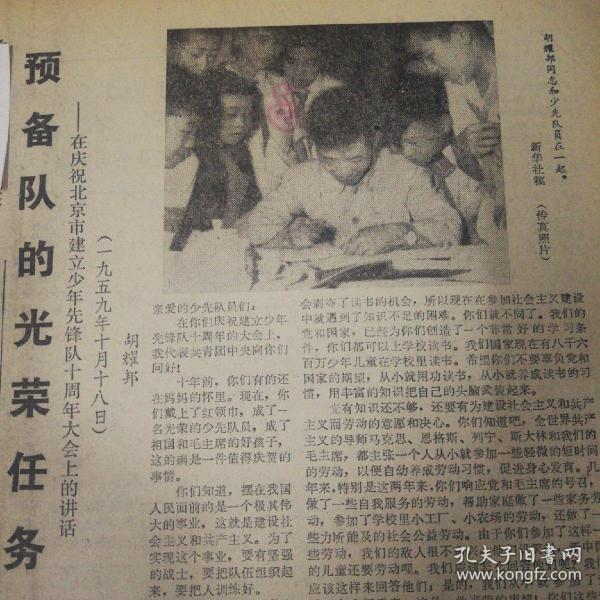 预备队的光荣任务
——在庆祝北京市建立少年先锋队十周年大会上的讲话
（一九五九年十月十八日）
胡耀邦
胡耀邦同志和少先队员在一起。
新华社稿
（传真照片）
亲爱的少先队员们：
在你们庆祝建立少年
先锋队十周年的大会上，
我代表共青团中央向你们
问好！
十年前，你们有的还
在妈妈的怀里。现在，你
们戴上了红领巾，成了一
名光荣的少先队员，成了
祖国和毛主席的好孩子，
这的确是一件值得庆贺的
事情。
你们知道，摆在我国
人民面前的是一个极其伟
大的事业，这就是建设社
会主义和共产主义。为了
实现这个事业，要有坚强
的战士，要把队伍组织起
来，要把人训练好。
会剥夺了读书的机会，所以现在在参加社会主义建设
中就遇到了知识不足的困难。你们就不同了。我们的
党和国家，已经为你们创造了一个非常好的学习条
件，你们都可以上学校读书。我们国家现在有八千六
百万少年儿童在学校里读书。希望你们不要辜负党和
国家的期望，从小就用功读书，从小就养成读书的习
惯，用丰富的知识把自己的头脑武装起来。
光有知识还不够，还要有为建设社会主义和共产
主义而劳动的意愿和决心。你们知道吧，全世界共产
主义的导师马克思、恩格斯、列宁、斯大林和我们的
毛主席，都主张一个人从小就参加一些轻微的短时间
的劳动，以便自幼养成劳动习惯，促进身心发育。几
年来，特别是这两年来，你们响应党和毛主席的号召，
做了一些自我服务的劳动，帮助家庭做了一些家务劳
动，参加了学校里小工厂、小农场的劳动，还做了一
些力所能及的社会公益劳动。由于你们参加了这样一
些劳动，我们的敌人很不
的儿童还要劳动哩。我们
应该这样来回答他们：是的，我们从
孔夫子旧书网
www.kongfz.com